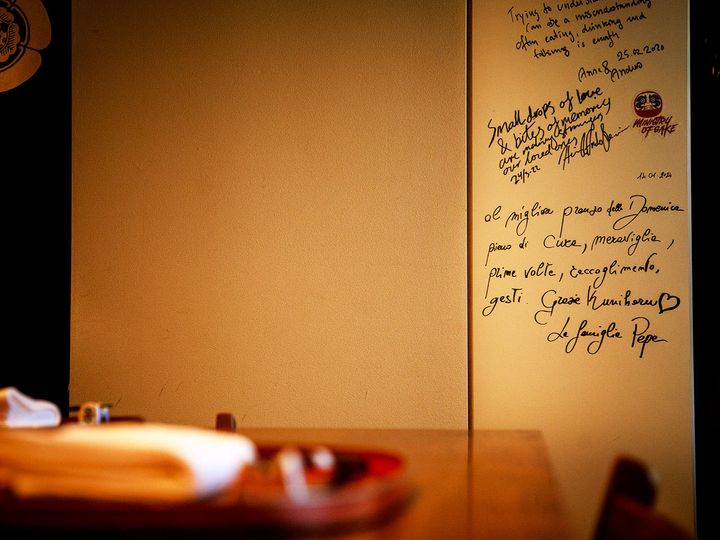 Trying to understand
can be a misunderstanding
often eating, drinking and
talking is enough
25.02.2020
Anne &
Andrea
Small drops of love
& bites of memories
are making strangers
our loved ones
24/3.22
MINISTRY
OF SAKE
14.01.2024
Il miglior pranzo della Domenica
pieno di Cura, meraviglia,
prime volte, raccoglimento,
gesti. Grazie Kuniharu♡
La famiglia Pepe